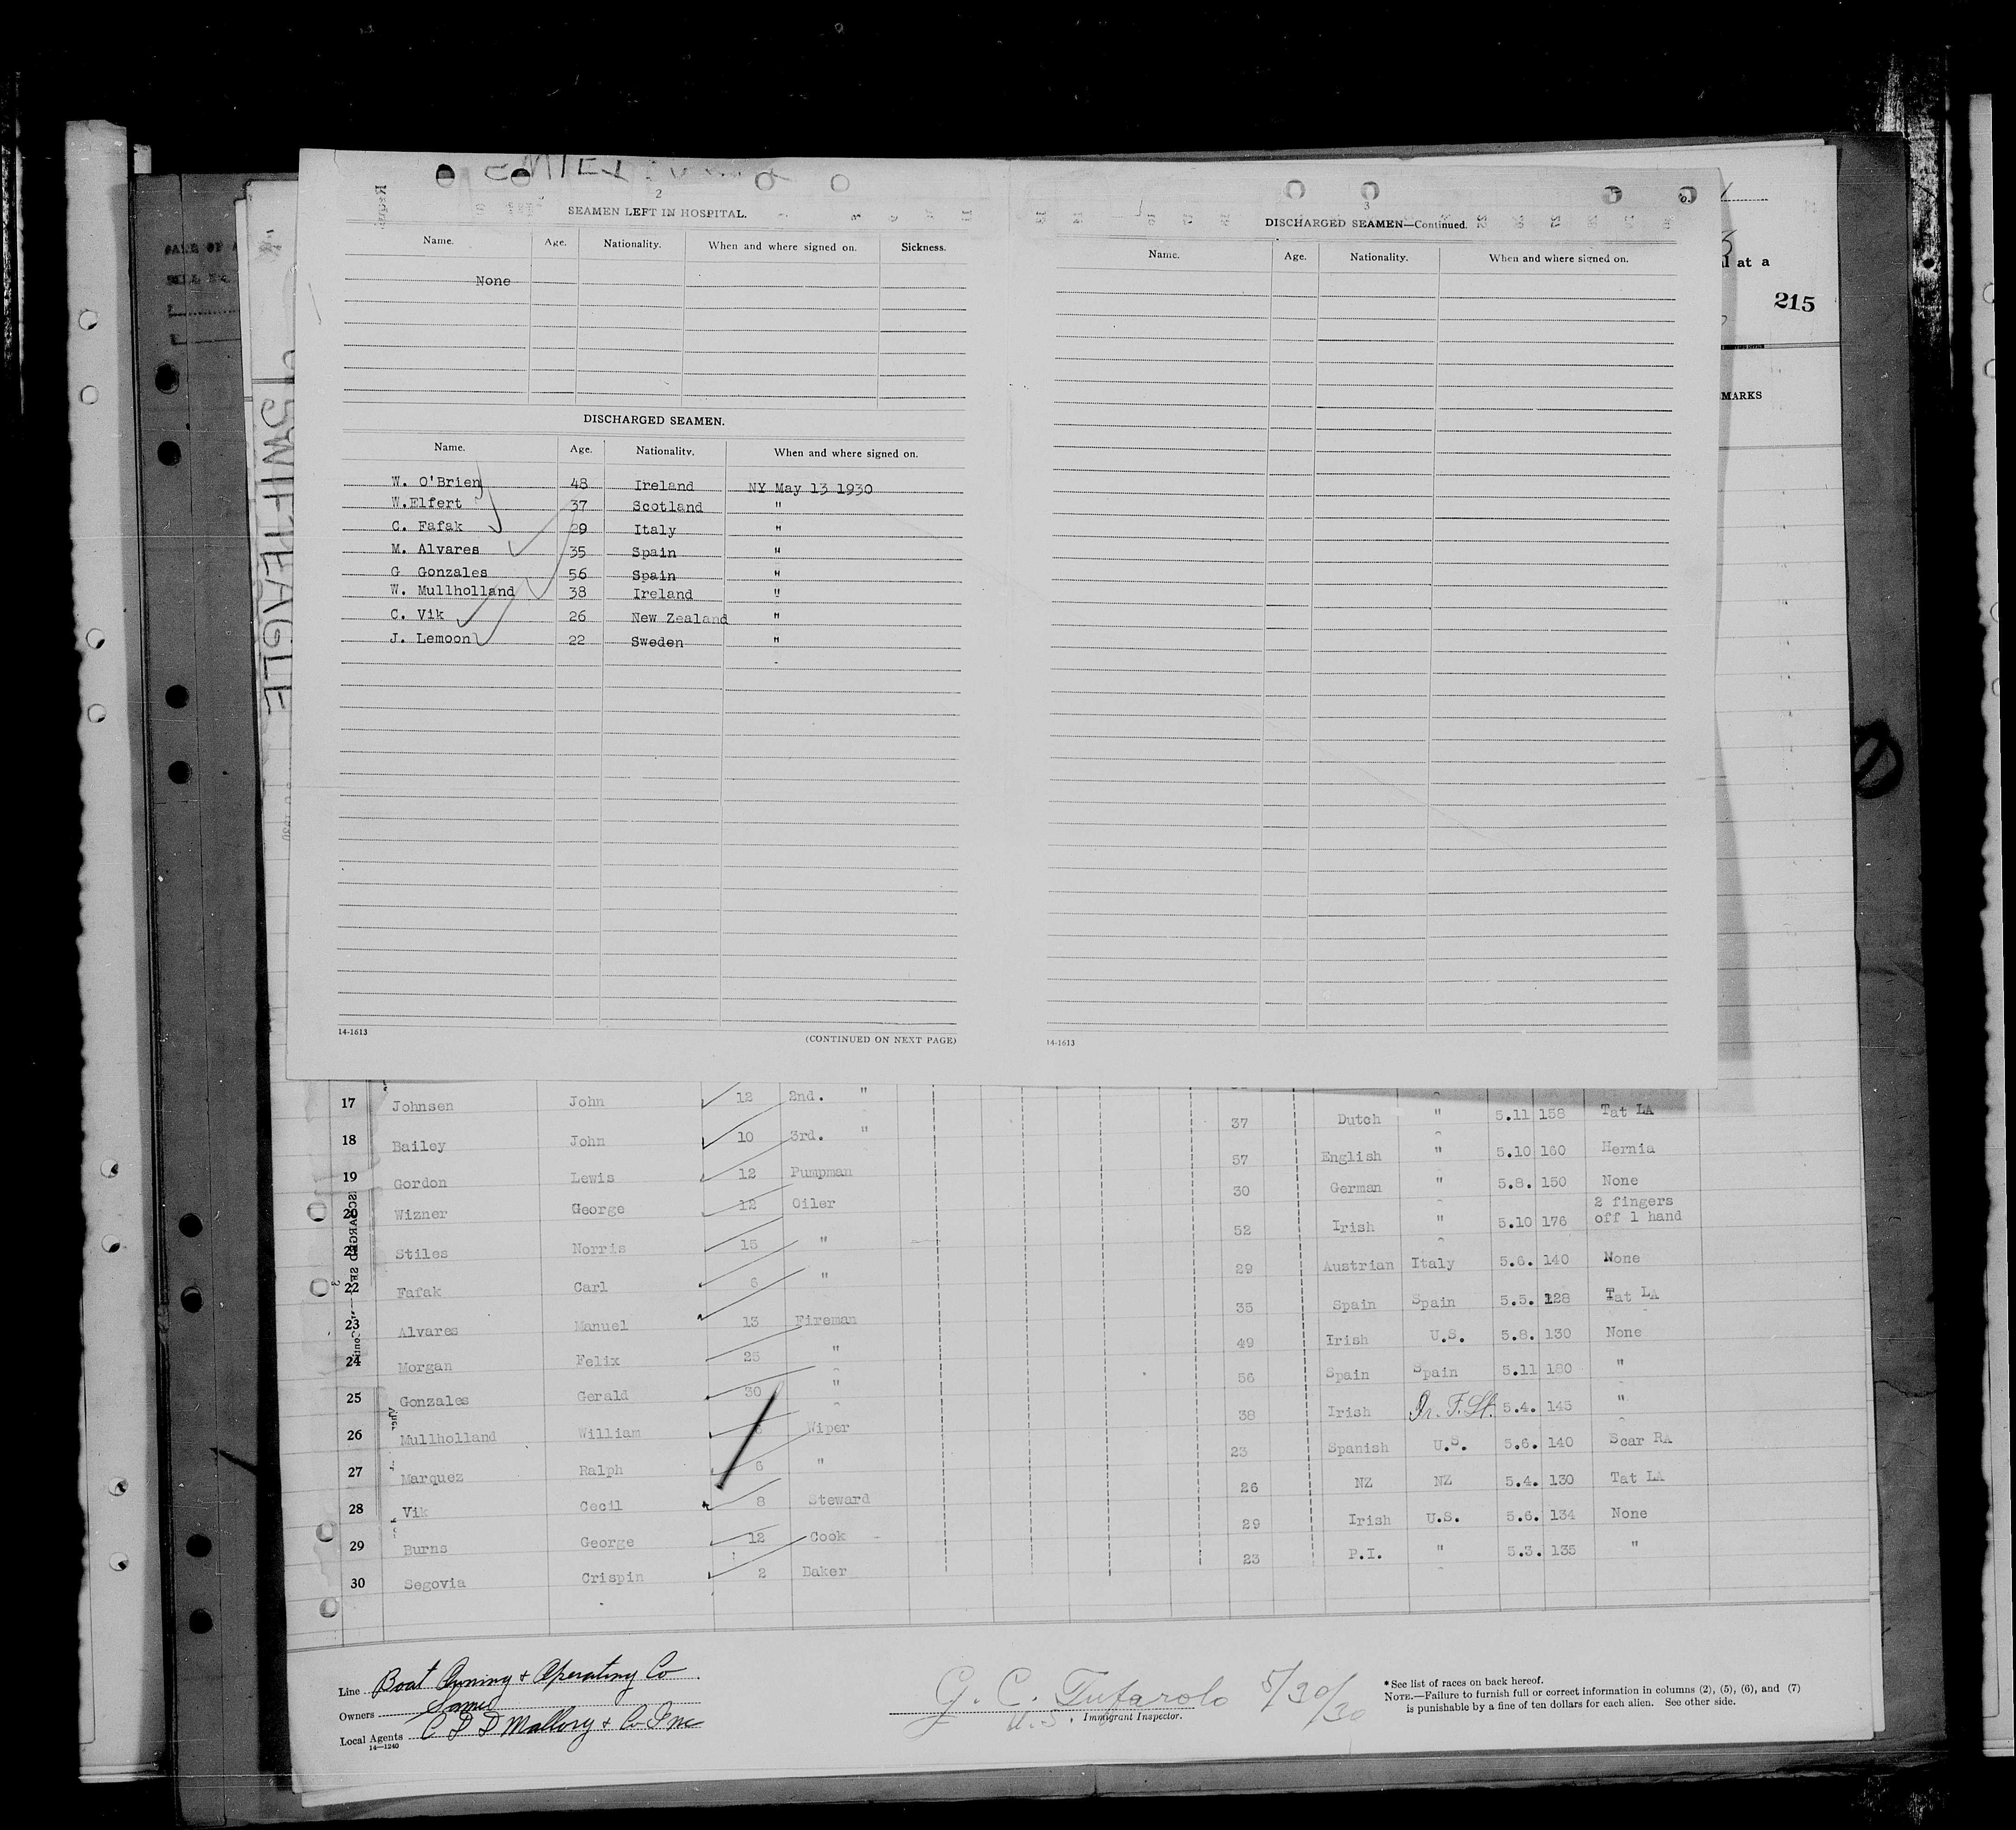 2
SEAMEN LEFT IN HOSPITAL.
Name. Age. Nationality. When and where signed on. Sickness.
None
DISCHARGED SEAMEN.
Name. Age. Nationality. When and where signed on.
W. O'Brien 48 Ireland NY May 13 1930
W.Elfert 37 Scotland "
C. Fafak 29 Italy "
M. Alvares 35 Spain "
G Gonzales 56 Spain "
W. Mullholland 38 Ireland "
C. Vik 26 New Zealand "
J. Lemoon 22 Sweden "
14-1613
(CONTINUED ON NEXT PAGE)
3
DISCHARGED SEAMEN—Continued.
Name. Age. Nationality. When and where signed on.
14-1613
at a
215
MARKS
SWIFTEAGLE
17 Johnsen John 12 2nd. " 37 Dutch " 5.11 158 Tat LA
18 Bailey John 10 3rd. " 57 English " 5.10 160 Hernia
19 Gordon Lewis 12 Pumpman 30 German " 5.8. 150 None
20 Wizner George 12 Oiler 52 Irish " 5.10 176 2 fingers off 1 hand
21 Stiles Norris 15 " 29 Austrian Italy 5.6. 140 None
22 Fafak Carl 6 " 35 Spain Spain 5.5. 128 Tat LA
23 Alvares Manuel 13 Fireman 49 Irish U.S. 5.8. 130 None
24 Morgan Felix 25 " 56 Spain Spain 5.11 180 "
25 Gonzales Gerald 30 " 38 Irish Ir. F. St. 5.4. 145 "
26 Mullholland William Wiper 23 Spanish U.S. 5.6. 140 Scar RA
27 Marquez Ralph 6 " 26 NZ NZ 5.4. 130 Tat LA
28 Vik Cecil 8 Steward 29 Irish U.S. 5.6. 134 None
29 Burns George 12 Cook 23 P.I. " 5.3. 135 "
30 Segovia Crispin 2 Baker
Line Boat Owning & Operating Co
Owners Same
Local Agents C D Mallory & Co Inc
14—1240
G. C. Tufarolo 5/20/30
U.S. Immigrant Inspector.
* See list of races on back hereof.
NOTE.—Failure to furnish full or correct information in columns (2), (5), (6), and (7)
is punishable by a fine of ten dollars for each alien. See other side.